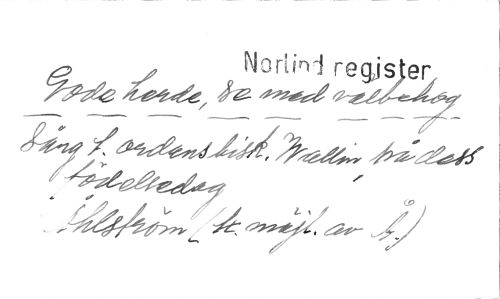 Norlind register
Gode herde, se med välbehag
Sång t. ordensbisk. Wallin, på dess
födelsedag
Åhlström (tr. möjl. av Å.)